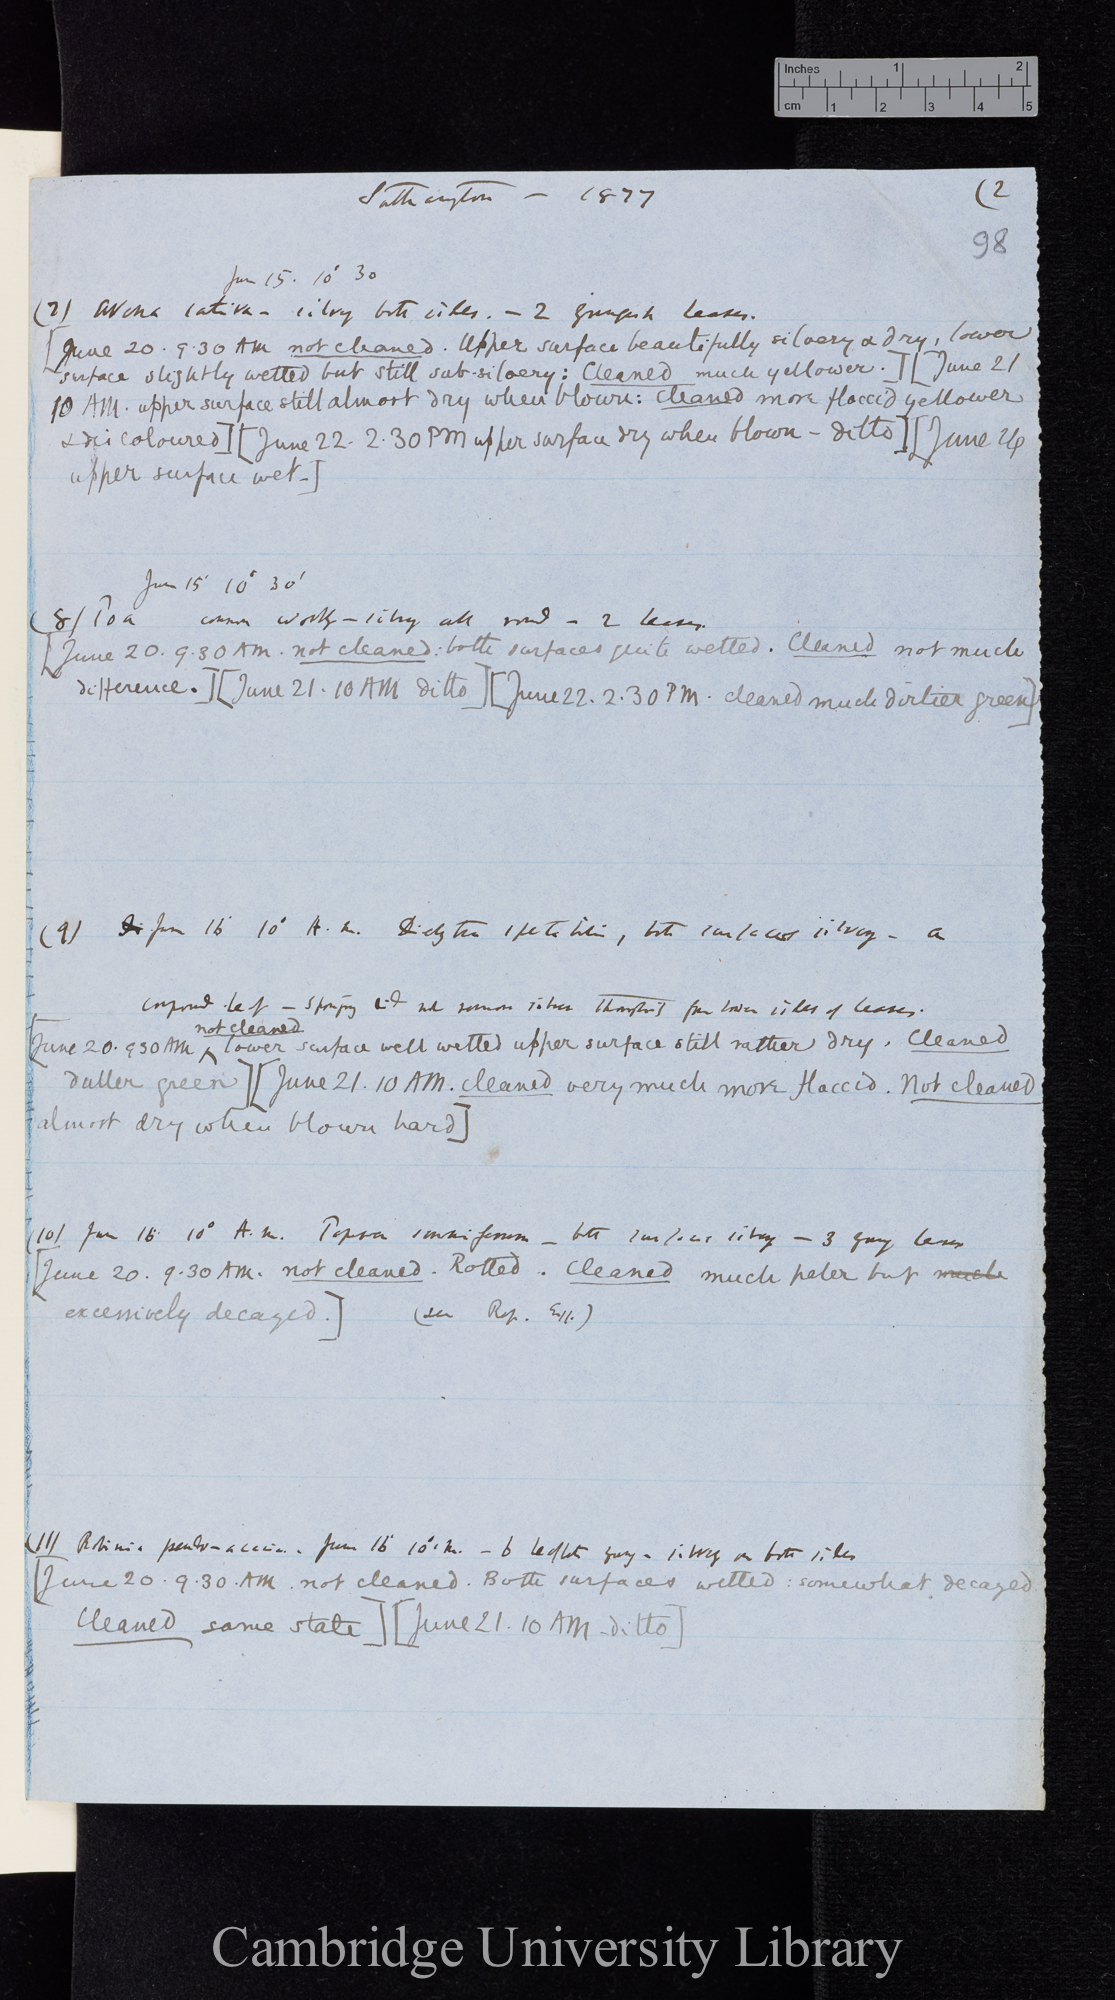 Inches 1 2
cm 1 2 3 4 5
Southampton — 1877 (2
98
June 15. 10° 30
(7) Avena sativa - silvery both sides. — 2 leaves.
[June 20. 9.30 AM not cleaned. Upper surface beautifully silvery & dry, lower
surface slightly wetted but still sub-silvery: Cleaned much yellower.] [June 21
10 AM. upper surface still almost dry when blown: cleaned more flaccid yellower
& discoloured] [June 22. 2.30 PM upper surface dry when blown - ditto] [June 24
upper surface wet-]
June 15 10° 30'
(8) Poa common worthy — silvery all round - 2 leaves.
[June 20. 9.30 AM. not cleaned: both surfaces quite wetted. Cleaned not much
difference.] [June 21. 10 AM ditto] [June 22. 2.30 PM. cleaned much dirtier green]
(9) June 16 10° A.m. Dielytra spectabilis, both surfaces silvery - a
compound leaf — Sponging did not remove silver thoroughly from lower sides of leaves.
not cleaned
[June 20. 9 30 AM ^ lower surface well wetted upper surface still rather dry. Cleaned
duller green] [June 21. 10 AM. cleaned very much more flaccid. Not cleaned
almost dry when blown hard]
(10) June 16 10° A.m. Papaver somniferum - both surfaces silvery — 3 young leaves
[June 20. 9.30 AM. not cleaned. Rotted. Cleaned much paler but much
excessively decayed.] (see Rep. Exp.)
(11) Robinia pseudo-acacia. June 16 10° A.m. - 6 leaflets young - silvery on both sides
[June 20. 9.30. AM. not cleaned. Both surfaces wetted: somewhat decayed
Cleaned same state] [June 21. 10 AM - ditto]
Cambridge University Library